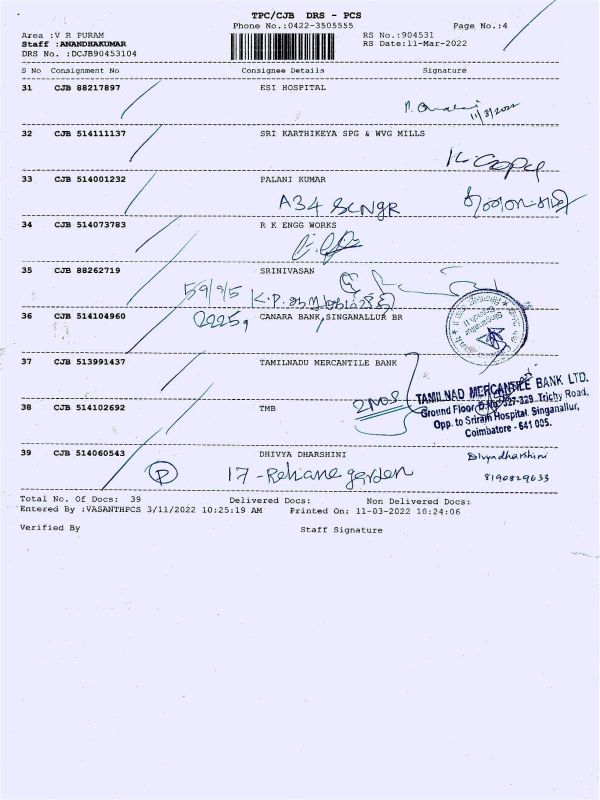 TPC/CJB DRS - PCS
Phone No.:0422-3505555 Page No.:4
Area :V R PURAM RS No.:904531
Staff :ANANDHAKUMAR RS Date:11-Mar-2022
DRS No. :DCJB90453104
S No Consignment No Consignee Details Signature
31 CJB 88217897 ESI HOSPITAL
11/3/2022
32 CJB 514111137 SRI KARTHIKEYA SPG & WVG MILLS
33 CJB 514001232 PALANI KUMAR
A34 SCNGR
34 CJB 514073783 R K ENGG WORKS
35 CJB 88262719 SRINIVASAN
59/9/5 K.P.
36 CJB 514104960 CANARA BANK,SINGANALLUR BR
37 CJB 513991437 TAMILNADU MERCANTILE BANK
TAMILNAD MERCANTILE BANK LTD.
38 CJB 514102692 TMB
2 NOS
Ground Floor, D.No. 327-329, Trichy Road,
Opp. to Sriram Hospital, Singanallur,
Coimbatore - 641 005.
39 CJB 514060543 DHIVYA DHARSHINI Divyadharshini
P 17 - Rehane garden 8190829633
Total No. Of Docs: 39 Delivered Docs: Non Delivered Docs:
Entered By :VASANTHPCS 3/11/2022 10:25:19 AM Printed On: 11-03-2022 10:24:06
Verified By Staff Signature